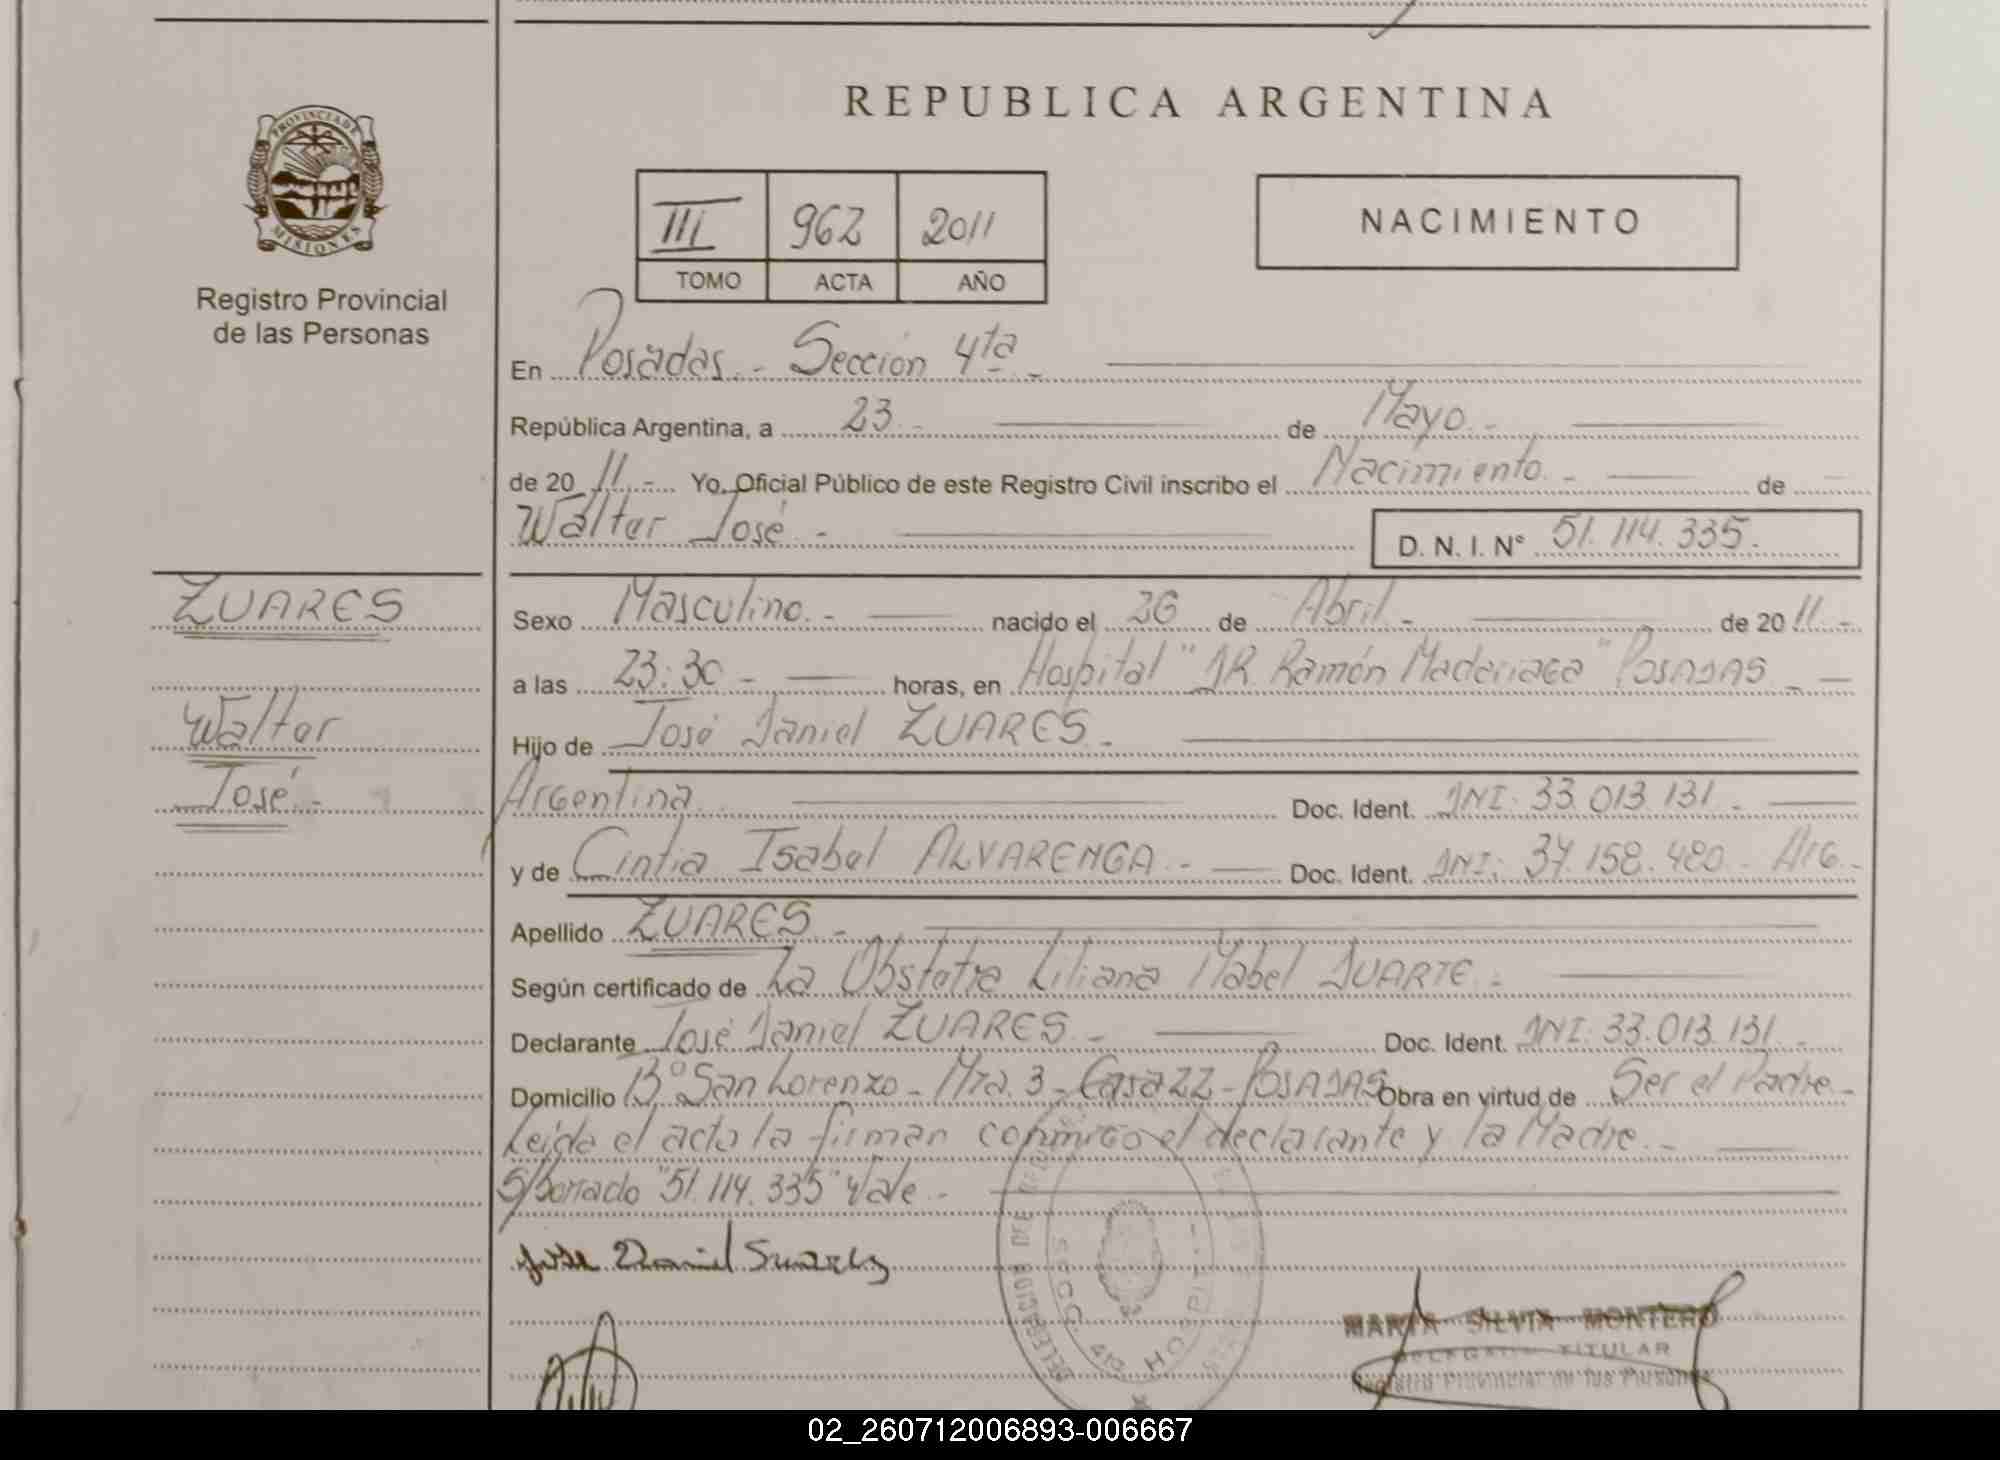 REPUBLICA ARGENTINA
PROVINCIA DE
MISIONES
Registro Provincial
de las Personas
III 962 2011
TOMO ACTA AÑO
NACIMIENTO
En Posadas.- Sección 4ta.-
República Argentina, a 23.- de Mayo.-
de 20 11.- Yo, Oficial Público de este Registro Civil inscribo el Nacimiento.- de
Walter José.- D. N. I. N° 51.114.335.
ZUARES
Walter
José.-
Sexo Masculino.- nacido el 26 de Abril.- de 20 11.-
a las 23:30.- horas, en Hospital "DR. Ramón Madariaga" POSADAS.-
Hijo de José Daniel ZUARES.-
Argentina Doc. Ident. DNI: 33.013.131.-
y de Cintia Isabel ALVARENGA.- Doc. Ident. DNI: 34.158.480.- Arg.-
Apellido ZUARES.-
Según certificado de La Obstetra Liliana Mabel DUARTE.-
Declarante José Daniel ZUARES.- Doc. Ident. DNI: 33.013.131.-
Domicilio B° San Lorenzo - Mza. 3 - Casa 22 - POSADAS Obra en virtud de Ser el Padre.-
Leída el acta la firman conmigo el declarante y la Madre.-
S/borrado "51.114.335" Vale.-
Jose Daniel Suares
SECC. 4ta HOSPITAL
MARTA SILVIA MONTERO
DELEGADA TITULAR
Registro Provincial de las Personas
02_260712006893-006667